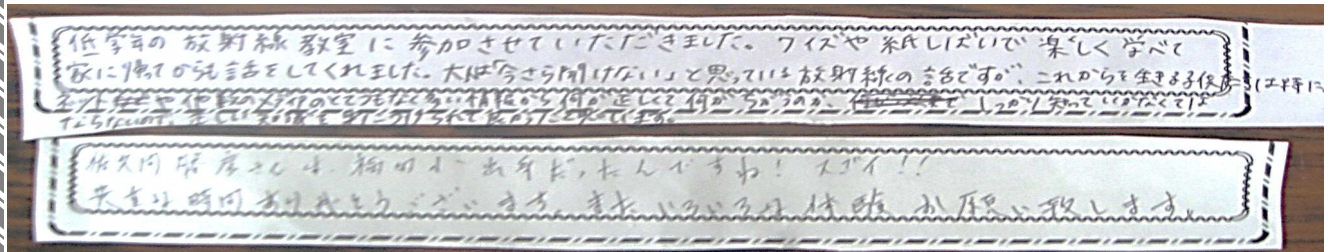 低学年の放射線教室に参加させていただきました。クイズや紙しばいで楽しく学べて
家に帰ってからも話をしてくれました。大人は「今さら聞けない」と思っている放射線の話ですが、これからを生きる子供たちは特に
多い情報から何が正しくて何がちがうのか、しっかり知っていかなくては
ならないので、正しい知識を身につけられて良かったと思っています。
佐久間 さんは、 出身だったんですね！スゴイ!!
貴重な時間ありがとうございます。また、いろいろな体験お願い致します。